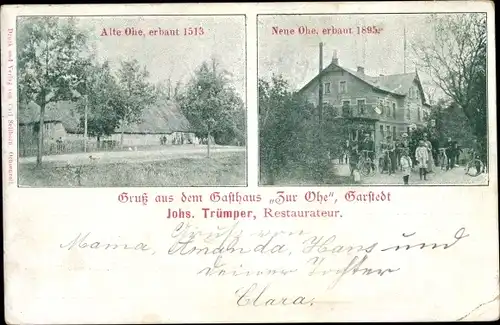 Alte Ohe, erbaut 1513
Neue Ohe, erbaut 1895.
Druck und Verlag von Carl
Gruß aus dem Gasthaus „Zur Ohe", Garstedt
Johs. Trümper, Restaurateur.
Gruß von
Mama, Amanda, Hans und
deiner Tochter
Clara.